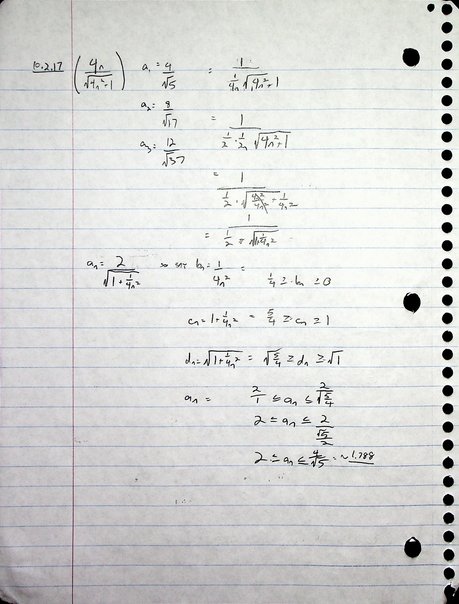 10.2.17 (4n/√(4n²+1)) a₁ = 4/√5 = 1/(1/4n √(4n²+1))
a₂ = 8/√17 = 1/(1/2 · 1/2n √(4n²+1))
a₃ = 12/√37
= 1/(1/2 · √(4n²/4n² + 1/4n²))
= 1
aₙ = 2/√(1+1/4n²) so say bₙ = 1/4n² = 1/4 ≥ bₙ ≥ 0
cₙ = 1+1/4n² = 5/4 ≥ cₙ ≥ 1
dₙ = √(1+1/4n²) = √(5/4) ≥ dₙ ≥ √1
aₙ = 2/1 ≤ aₙ ≤ 2/√(5/4)
2 ≤ aₙ ≤ 2/(√5/2)
2 ≤ aₙ ≤ 4/√5 = ~1.788